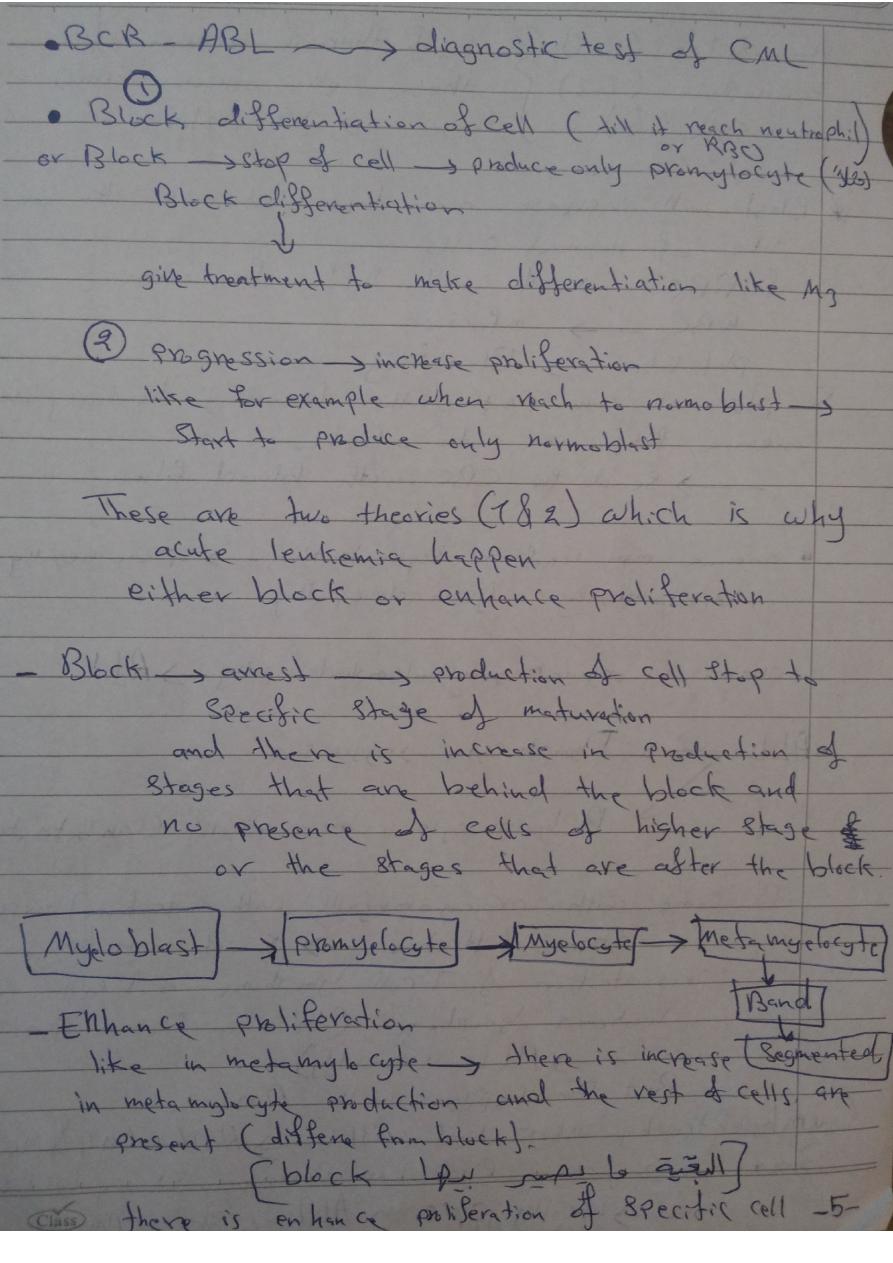 • BCR - ABL → diagnostic test of CML
①
• Block differentiation of cell (till it reach neutrophil)
or RBC
or Block → stop of cell → produce only promylocyte
Block differentiation
↓
give treatment to make differentiation like M3
② progression → increase proliferation
like for example when reach to normoblast →
start to produce only normoblast
These are two theories (1 & 2) which is why
acute leukemia happen
either block or enhance proliferation
- Block → arrest → production of cell stop to
specific stage of maturation
and there is increase in production of
stages that are behind the block and
no presence of cells of higher stage
or the stages that are after the block.
Myeloblast → promyelocyte → Myelocyte → Metamyelocyte
↓
Band
↓
Segmented
- Enhance proliferation
like in metamylocyte → there is increase
in metamylocyte production and the rest of cells are
present (differe from block).
[البقية ما يصير بيها block]
there is enhance proliferation of specific cell -5-
Class